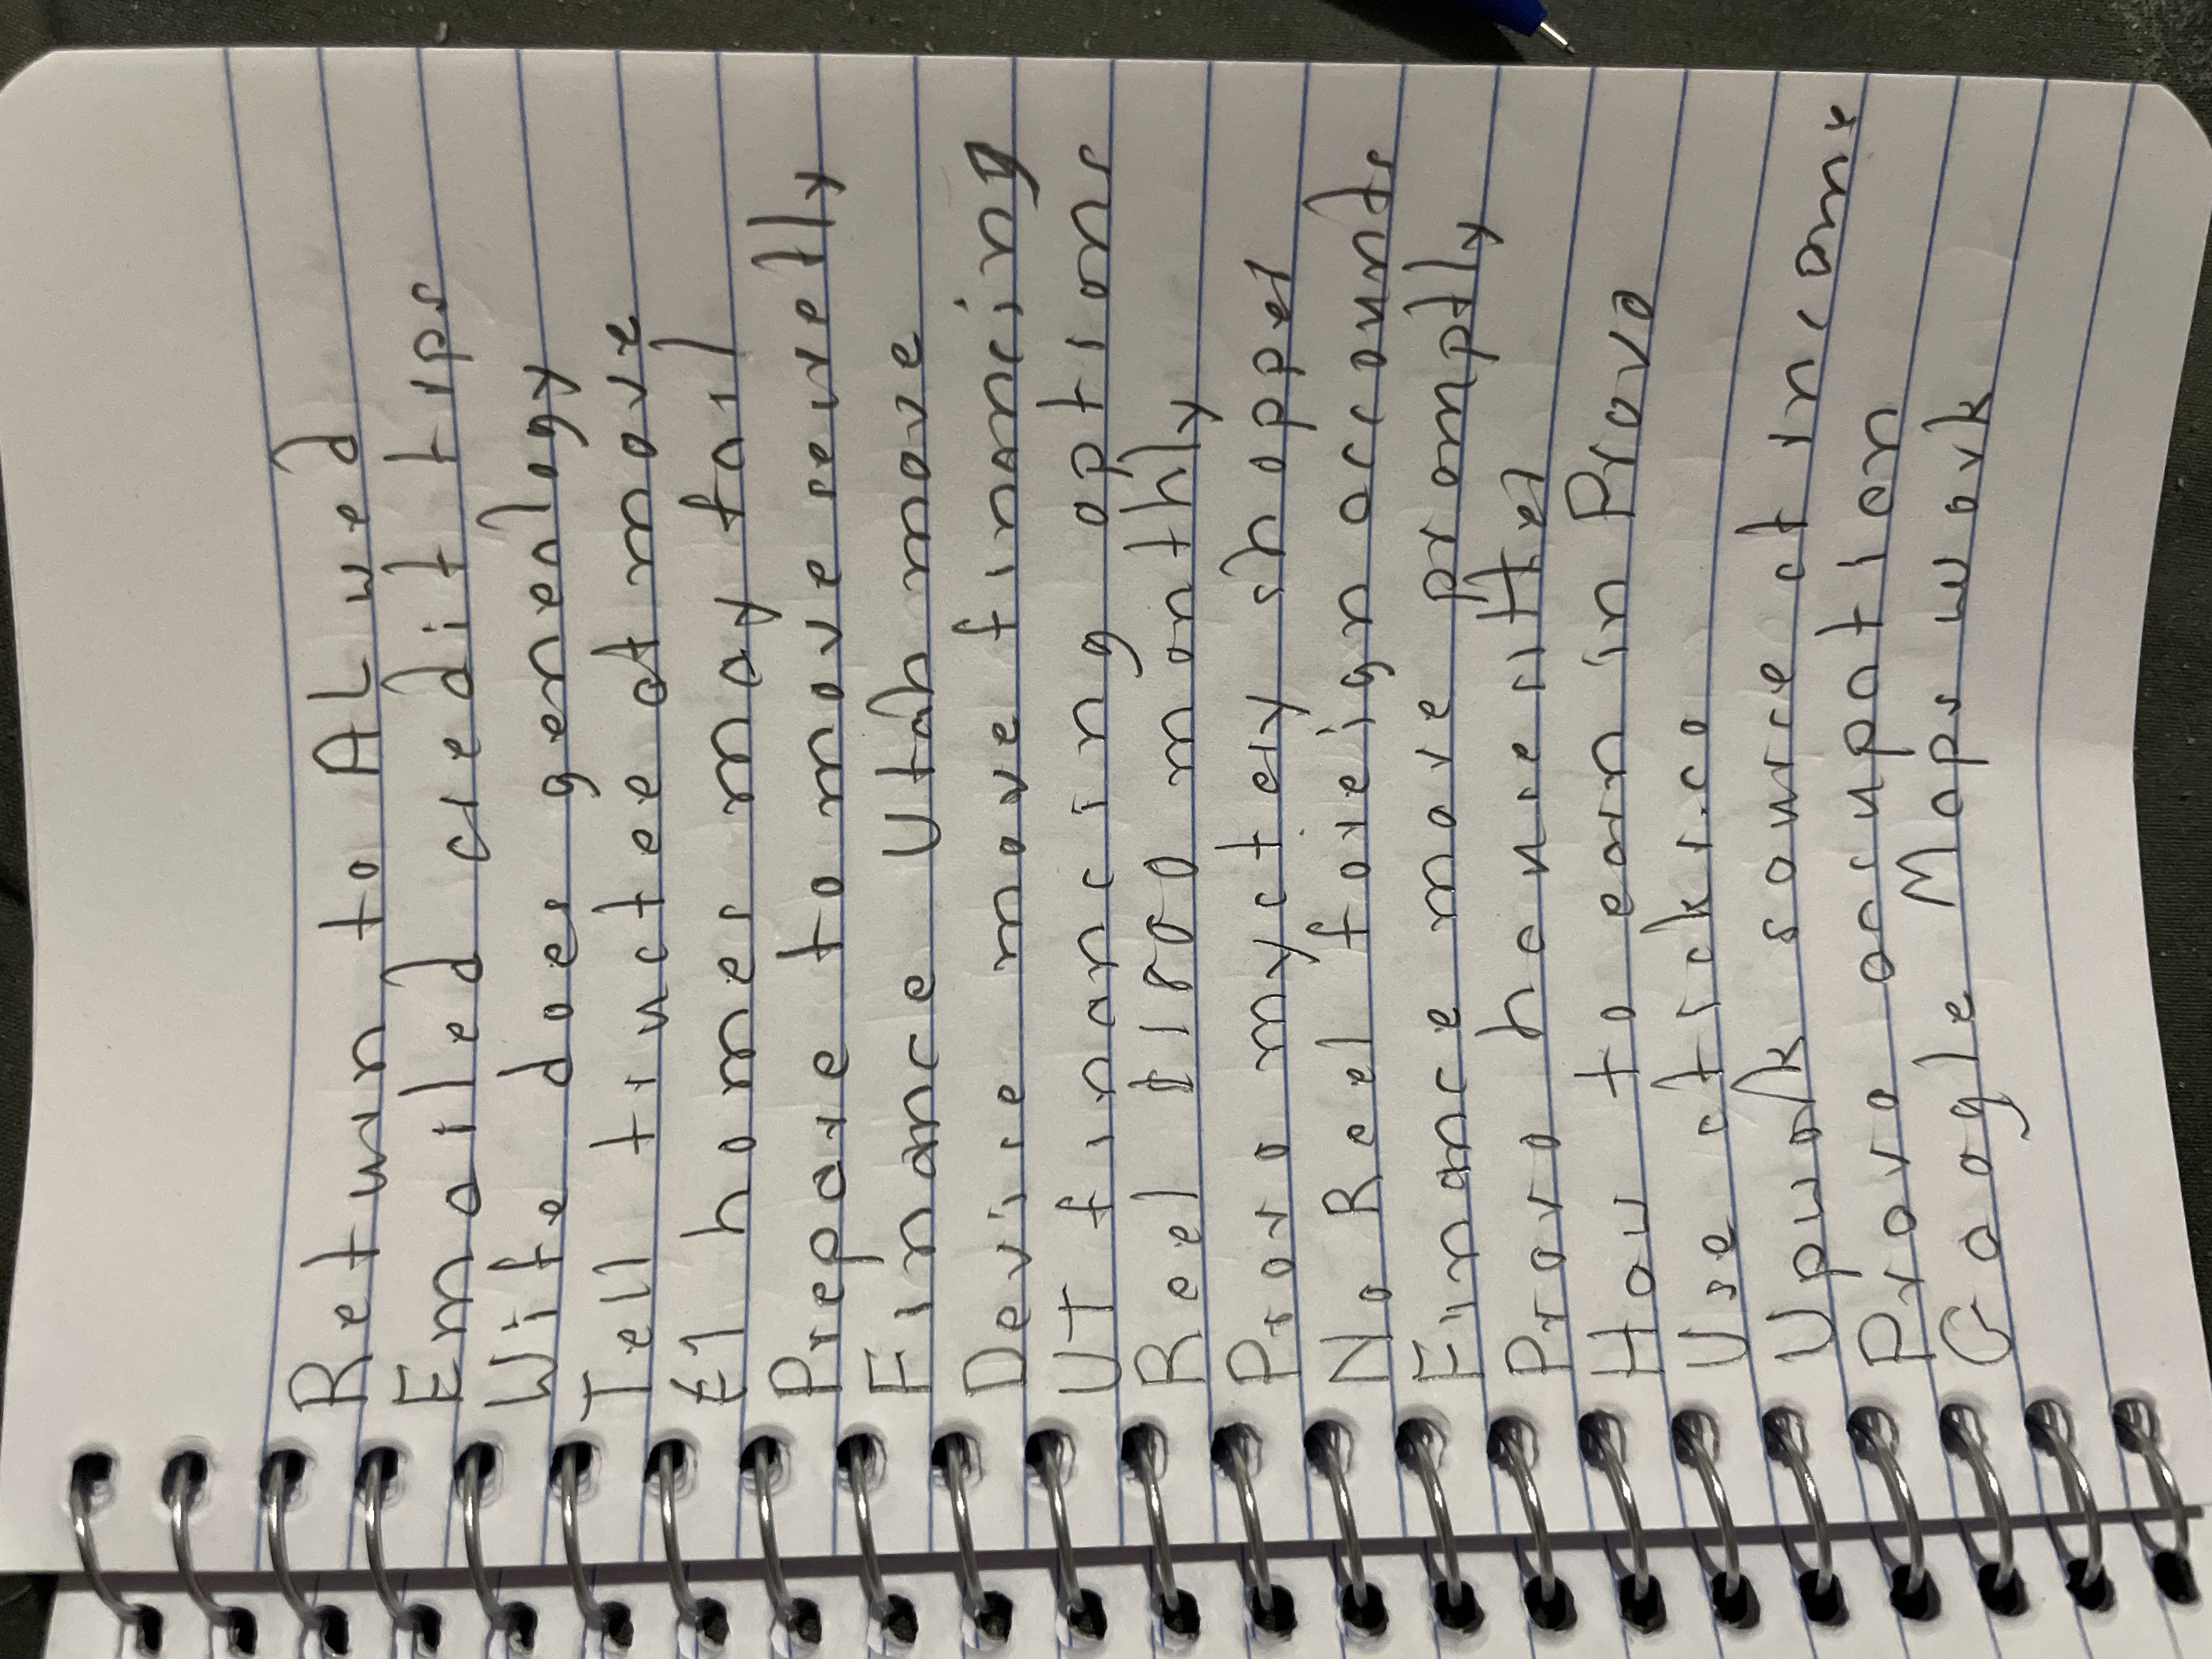 Return to AL wed
Emailed credit tips
Wife does genealogy
Tell trustee of move
El homes may fail
Prepare to move secretly
Finance Utah move
Devise move financing
UT financing options
Rel $1800 monthly
Pro mystery shopper
No Rel foreign accounts
Finance move promptly
Provo house sitter
How to earn in Provo
Use stickr.co
Upwork source of income
Provo occupation
Google Maps work